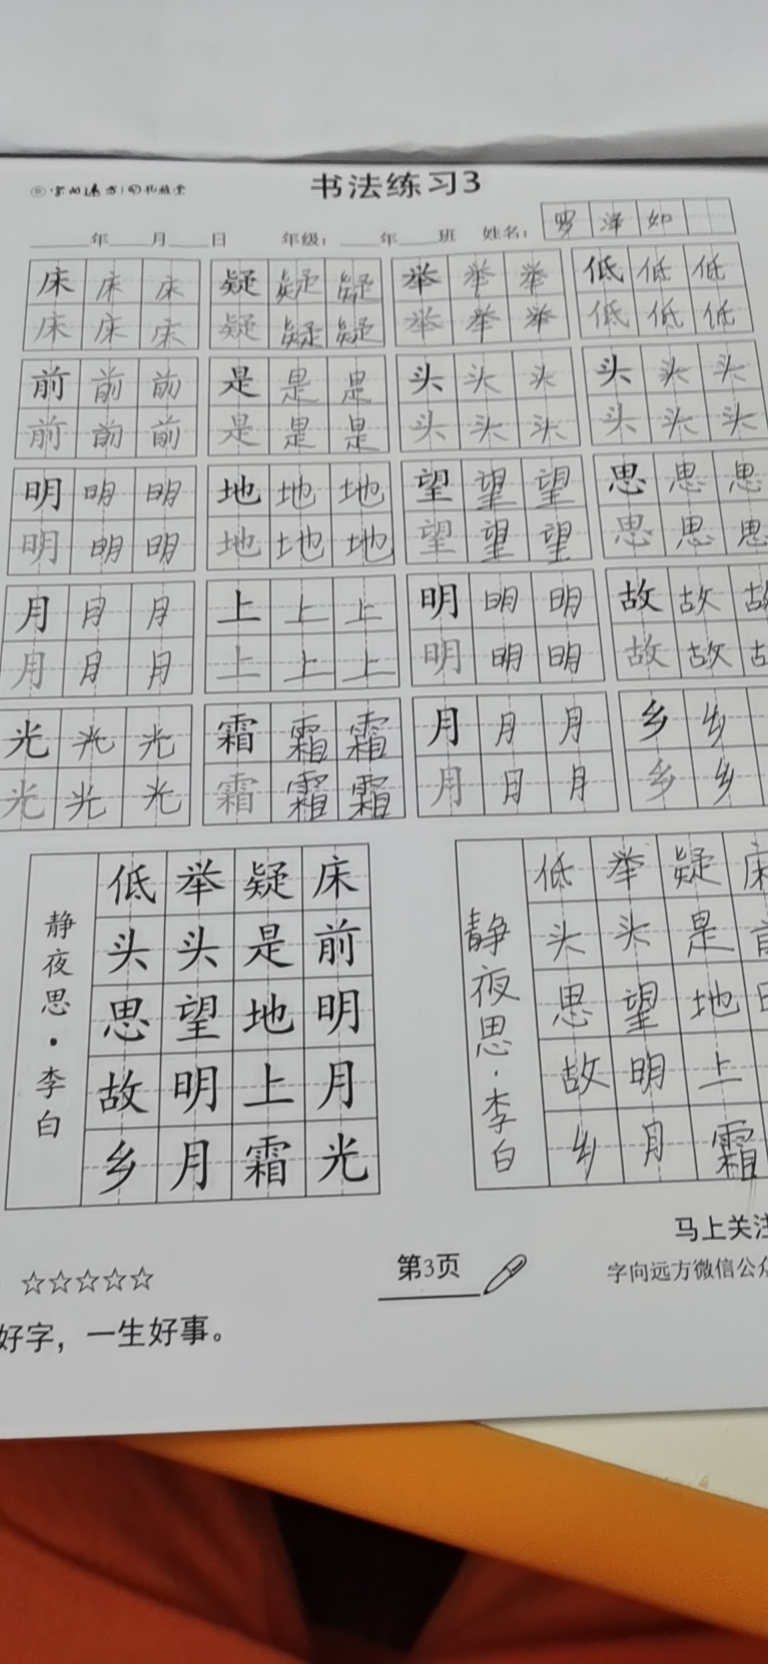 书法练习3
年 月 日 年级： 年 班 姓名： 罗 泽 如
床 床 床 疑 疑 疑 举 举 举 低 低 低
床 床 床 疑 疑 疑 举 举 举 低 低 低
前 前 前 是 是 是 头 头 头 头 头 头
前 前 前 是 是 是 头 头 头 头 头 头
明 明 明 地 地 地 望 望 望 思 思 思
明 明 明 地 地 地 望 望 望 思 思 思
月 月 月 上 上 上 明 明 明 故 故 故
月 月 月 上 上 上 明 明 明 故 故 故
光 光 光 霜 霜 霜 月 月 月 乡 乡
光 光 光 霜 霜 霜 月 月 月 乡 乡
床前明月光
疑是地上霜
举头望明月
低头思故乡
静夜思·李白
床前
疑是地上霜
举头望明月
低头思故乡
静夜思·李白
马上关注
☆☆☆☆☆
第3页
字向远方微信公众
好字，一生好事。